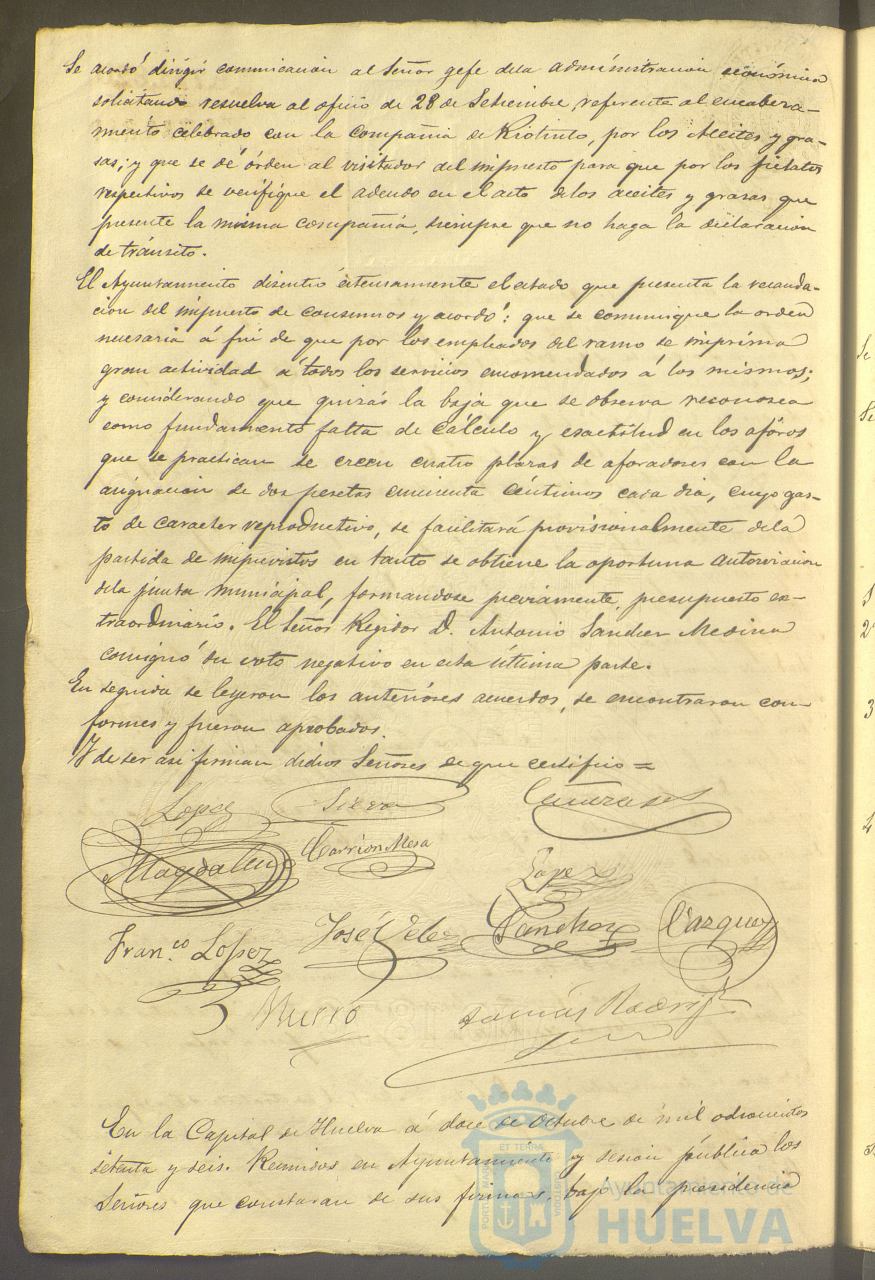 Se acordó dirigir comunicacion al Señor gefe dela administracion económica
solicitando resuelva al oficio de 28 de Setiembre, referente al encabeza-
miento celebrado con la compañia de Riotinto, por los Aceites y gra-
sas; y que se dé órden al visitador del impuesto para que por los fielatos
respectivos se verifique el adeudo en el acto delos aceites y grasas que
presente la misma compañia, siempre que no haga la declaracion
de tránsito.
El Ayuntamiento discutió estensamente el estado que presenta la recauda-
cion del impuesto de consumos y acordó: que se comunique la orden
necesaria á fin de que por los empleados del ramo se imprima
gran actividad á todos los servicios encomendados á los mismos;
y considerando que quizás la baja que se observa reconosca
como fundamento falta de cálculo y esactitud en los afóros
que se practican se creen cuatro plazas de aforadores con la
asignacion de dos pesetas cincuenta céntimos cada dia, cuyo gas-
to de caracter reproductivo, se facilitará provisionalmente dela
partida de imprevistos en tanto se obtiene la oportuna autorizacion
dela junta municipal, formandose previamente presupuesto es-
traordinario. El Señor Regidor D. Antonio Sanchez Medina
consignó su voto negativo en esta última parte.
En seguida se leyeron los anteriores acuerdos, se encontraron con-
formes y fueron aprobados.
Y de ser asi firman dichos Señores de que certifico =
Lopez
Magdalena Carrion Mesa
Lopez
Fran.co Lopez José Velez Sanchez Vazquez
Tomás Rodrig
En la Capital de Huelva á doce de Octubre de mil ochocientos
setenta y seis. Reunidos en Ayuntamiento y sesion pública los
Señores que constarán de sus firmas, bajo la presidencia
Ayuntamiento de
HUELVA